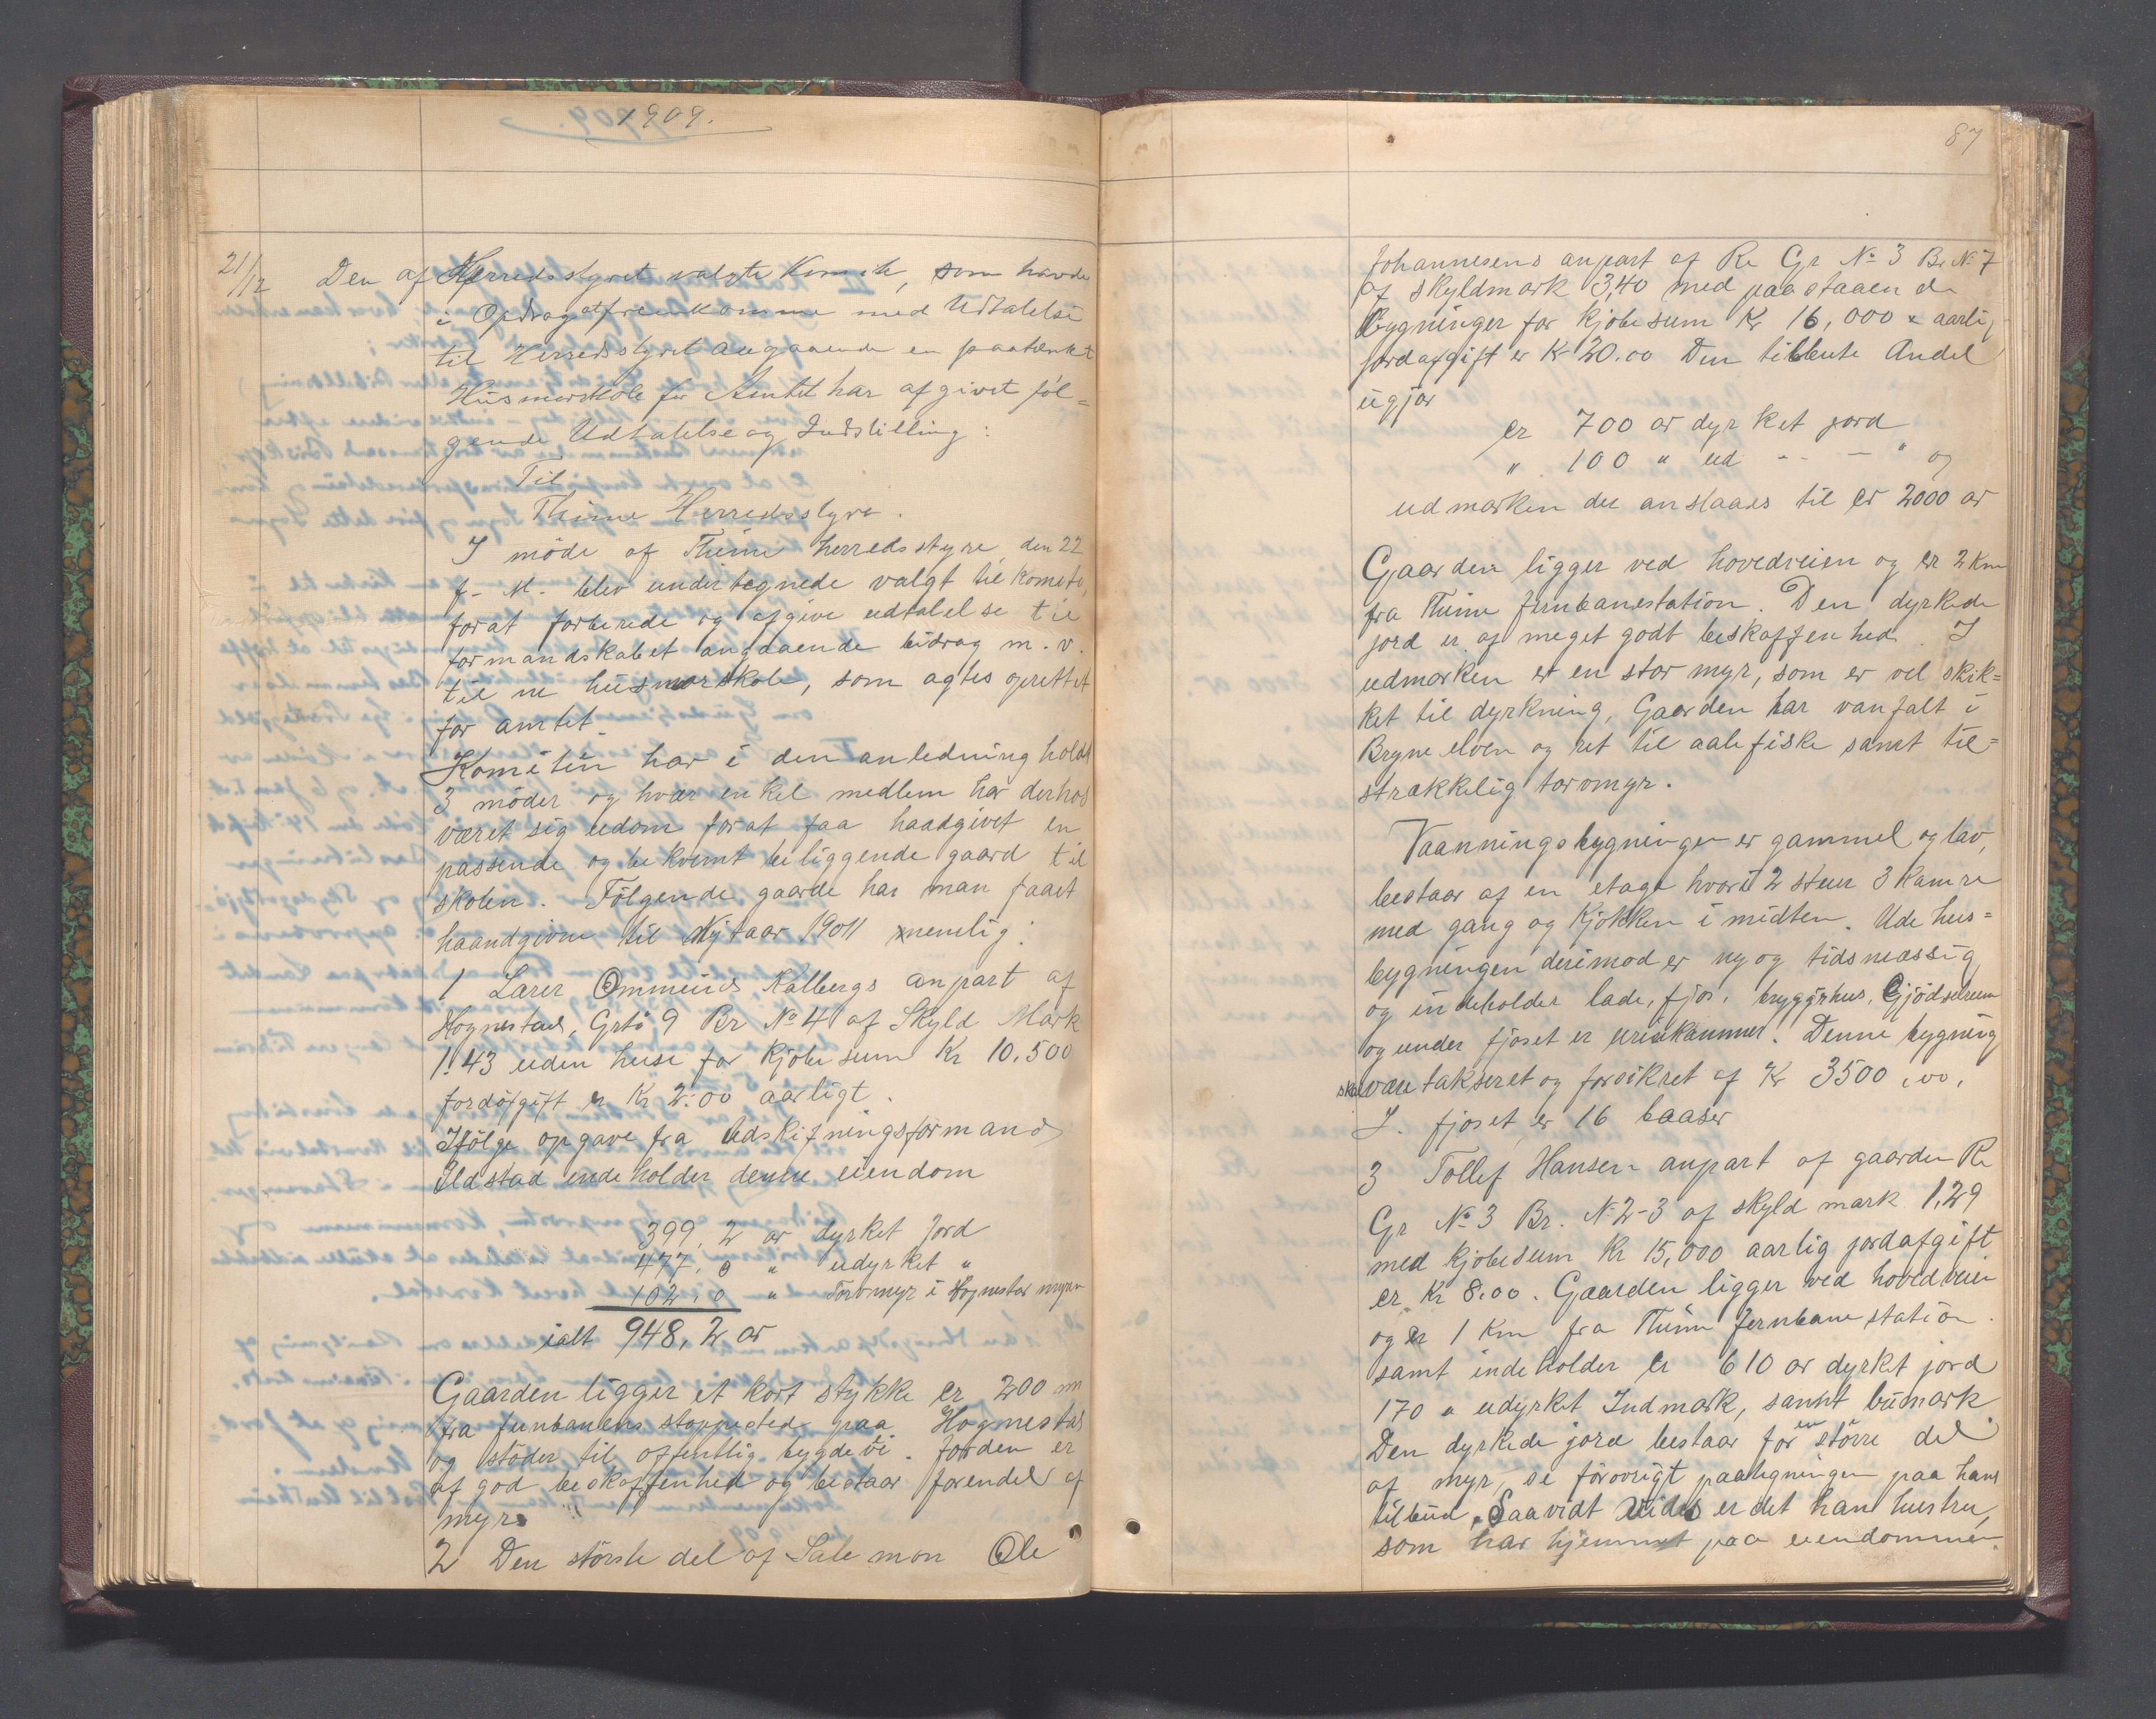 1909.
21/12 Den af Herredsstyret valgte Komite, som havde
i Opdrag at fremkomme med Udtalelse
til Herredsstyret angaaende en paatænkt
Husmorskole for Amtet har afgivet føl=
gende Udtalelse og Indstilling:
Til
Thime Herredsstyre.
I möde af Thime herredsstyre den 22
f. M. blev undertegnede valgt til komite,
forat forberede og afgive udtalelse til
formandskabet angaaende bidrag m. v.
til ne husmorskole, som agtes oprettet
for amtet.
Komitèen har i den anledning holdt
3 möder og hvær enkel medlem har derhos
været sig udom forat faa haadgivet en
passende og bekvemt beliggende gaard til
skolen. Fölgende gaarde har man faaet
haandgivne til Nytaar 1911 nemlig:
1 Lærer Ommunds Kalbergs anpart af
Hognestad, Grtö 9 Br No 4 af Skyld Mark
1.43 uden huse for kjöbesum Kr 10.500
jordafgift er Kr 2.00 aarligt.
Ifölge opgave fra Udskifningsformand
Ildstad indeholder denne eiendom
399,2 ar dyrket Jord
477,0 " udyrket "
102,0 " Torvmyr i Hognestad myren
ialt 948,2 ar
Gaarden ligger et kort stykke er 200 m
fra jernbanens stoppested paa Hognestad
og stöder til offentlig bygdevei. Jorden er
af god beskaffenhed og bestaar forendel af
myr.
2 Den störste del af Salemon Ole
87
Johannesens anpart af Re Gr No 3 Br No 7
af skyldmark 3,40 med paastaaende
Bygninger for kjöbesum Kr 16,000 aarlig
jordafgift er Kr 20.00 Den tilbente Andel
ugjör
er 700 ar dyrket jord
" 100 " ud - - — " og
udmarken der anslaaes til er 2000 ar
Gaarden ligger ved hovedveien og er 2 Km
fra Thime jernbanestation. Den dyrkede
jord er af meget godt beskaffenhed. I
udmarken er en stor myr, som er vel skik=
ket til dyrkning, Gaarden har vanfalt i
Bryne elven og ret til aalefiske samt til=
strækkelig torvmyr.
Vaanningsbygningen er gammel og lav,
bestaar af en etage hvori 2 stuer 3 Kamre
med gang og Kjökken i midten. Udehus=
bygningen derimod er ny og tidsmæssig
og indeholder lade, fjös, bryggrhus, Gjödselrum
og under fjöset er urinkammer. Denne bygning
skal være takseret og forsikret af Kr 3500,00.
I. fjöset er 16 baaser
3 Tollef Hansen anpart af gaarden Re
Gr No 3 Br. No 2-3 af skyld mark 1,29
med kjöbesum Kr 15,000 aarlig jordafgift
er Kr 8.00. Gaarden ligger ved hovedveien
og er 1 Km fra Thime jernbane station.
samt indeholder er 610 ar dyrket jord
170 " udyrket Indmark, samt bumark
Den dyrkede jord bestaar for en större del
af myr, se forövrigt paategningen paa hans
tilbud. Saavidt vides er det han hustru,
som har hjemmet paa eiendommen.